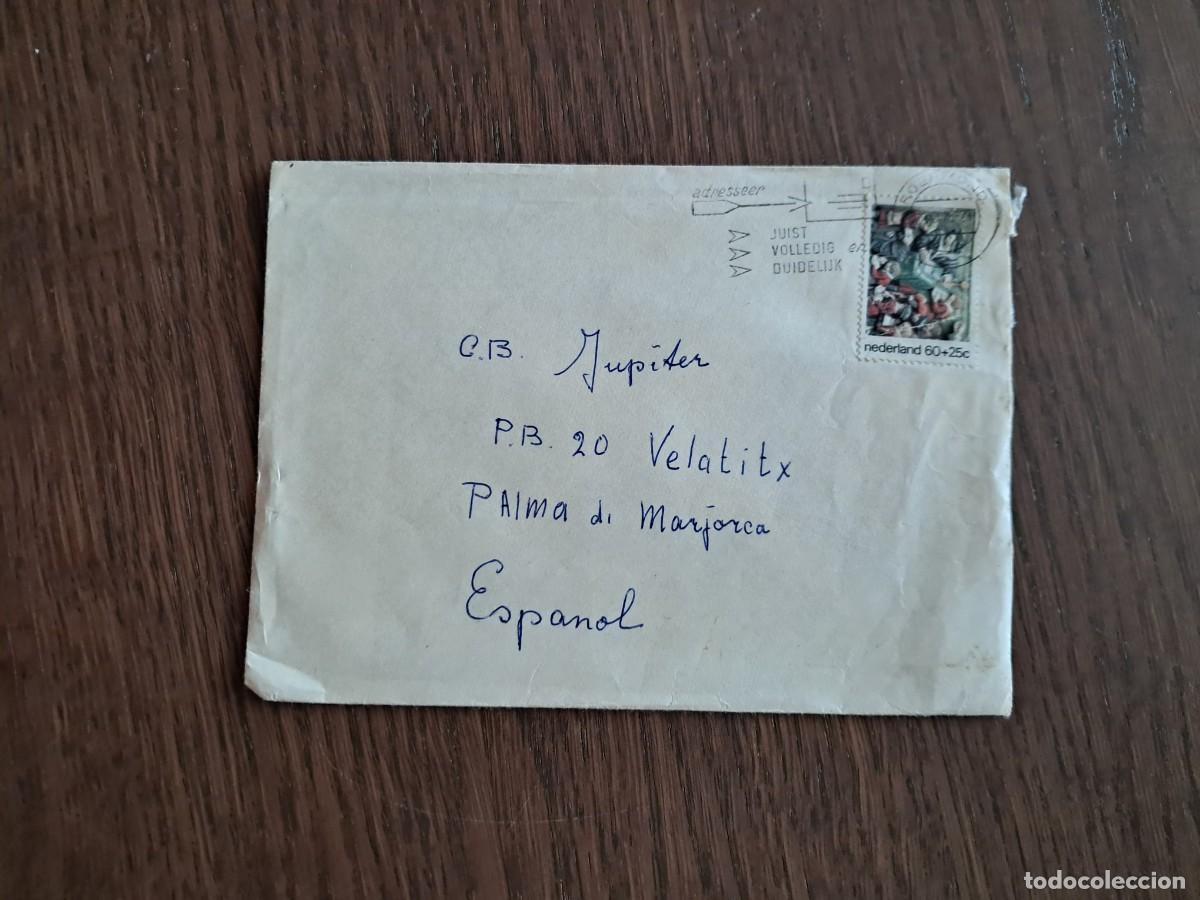 adresseer
JUIST
VOLLEDIG en
DUIDELIJK
nederland 60+25c
C.B. Jupiter
P.B. 20 Velatitx
PAlma di Marjorca
Espanol
todocoleccion